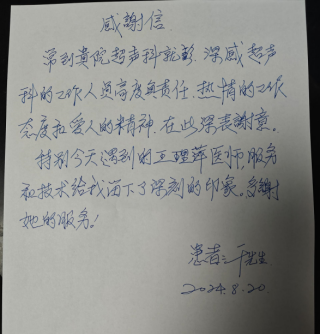 感謝信
常到貴院超声科就診.深感超声
科的工作人員高度負责任.热情的工作
态度和爱人的精神.在此深表謝意.
特别今天遇到的王理萍医师,服务
和技术给我留下了深刻的印象。多謝
她的服务!
患者:于先生
2024.8.20